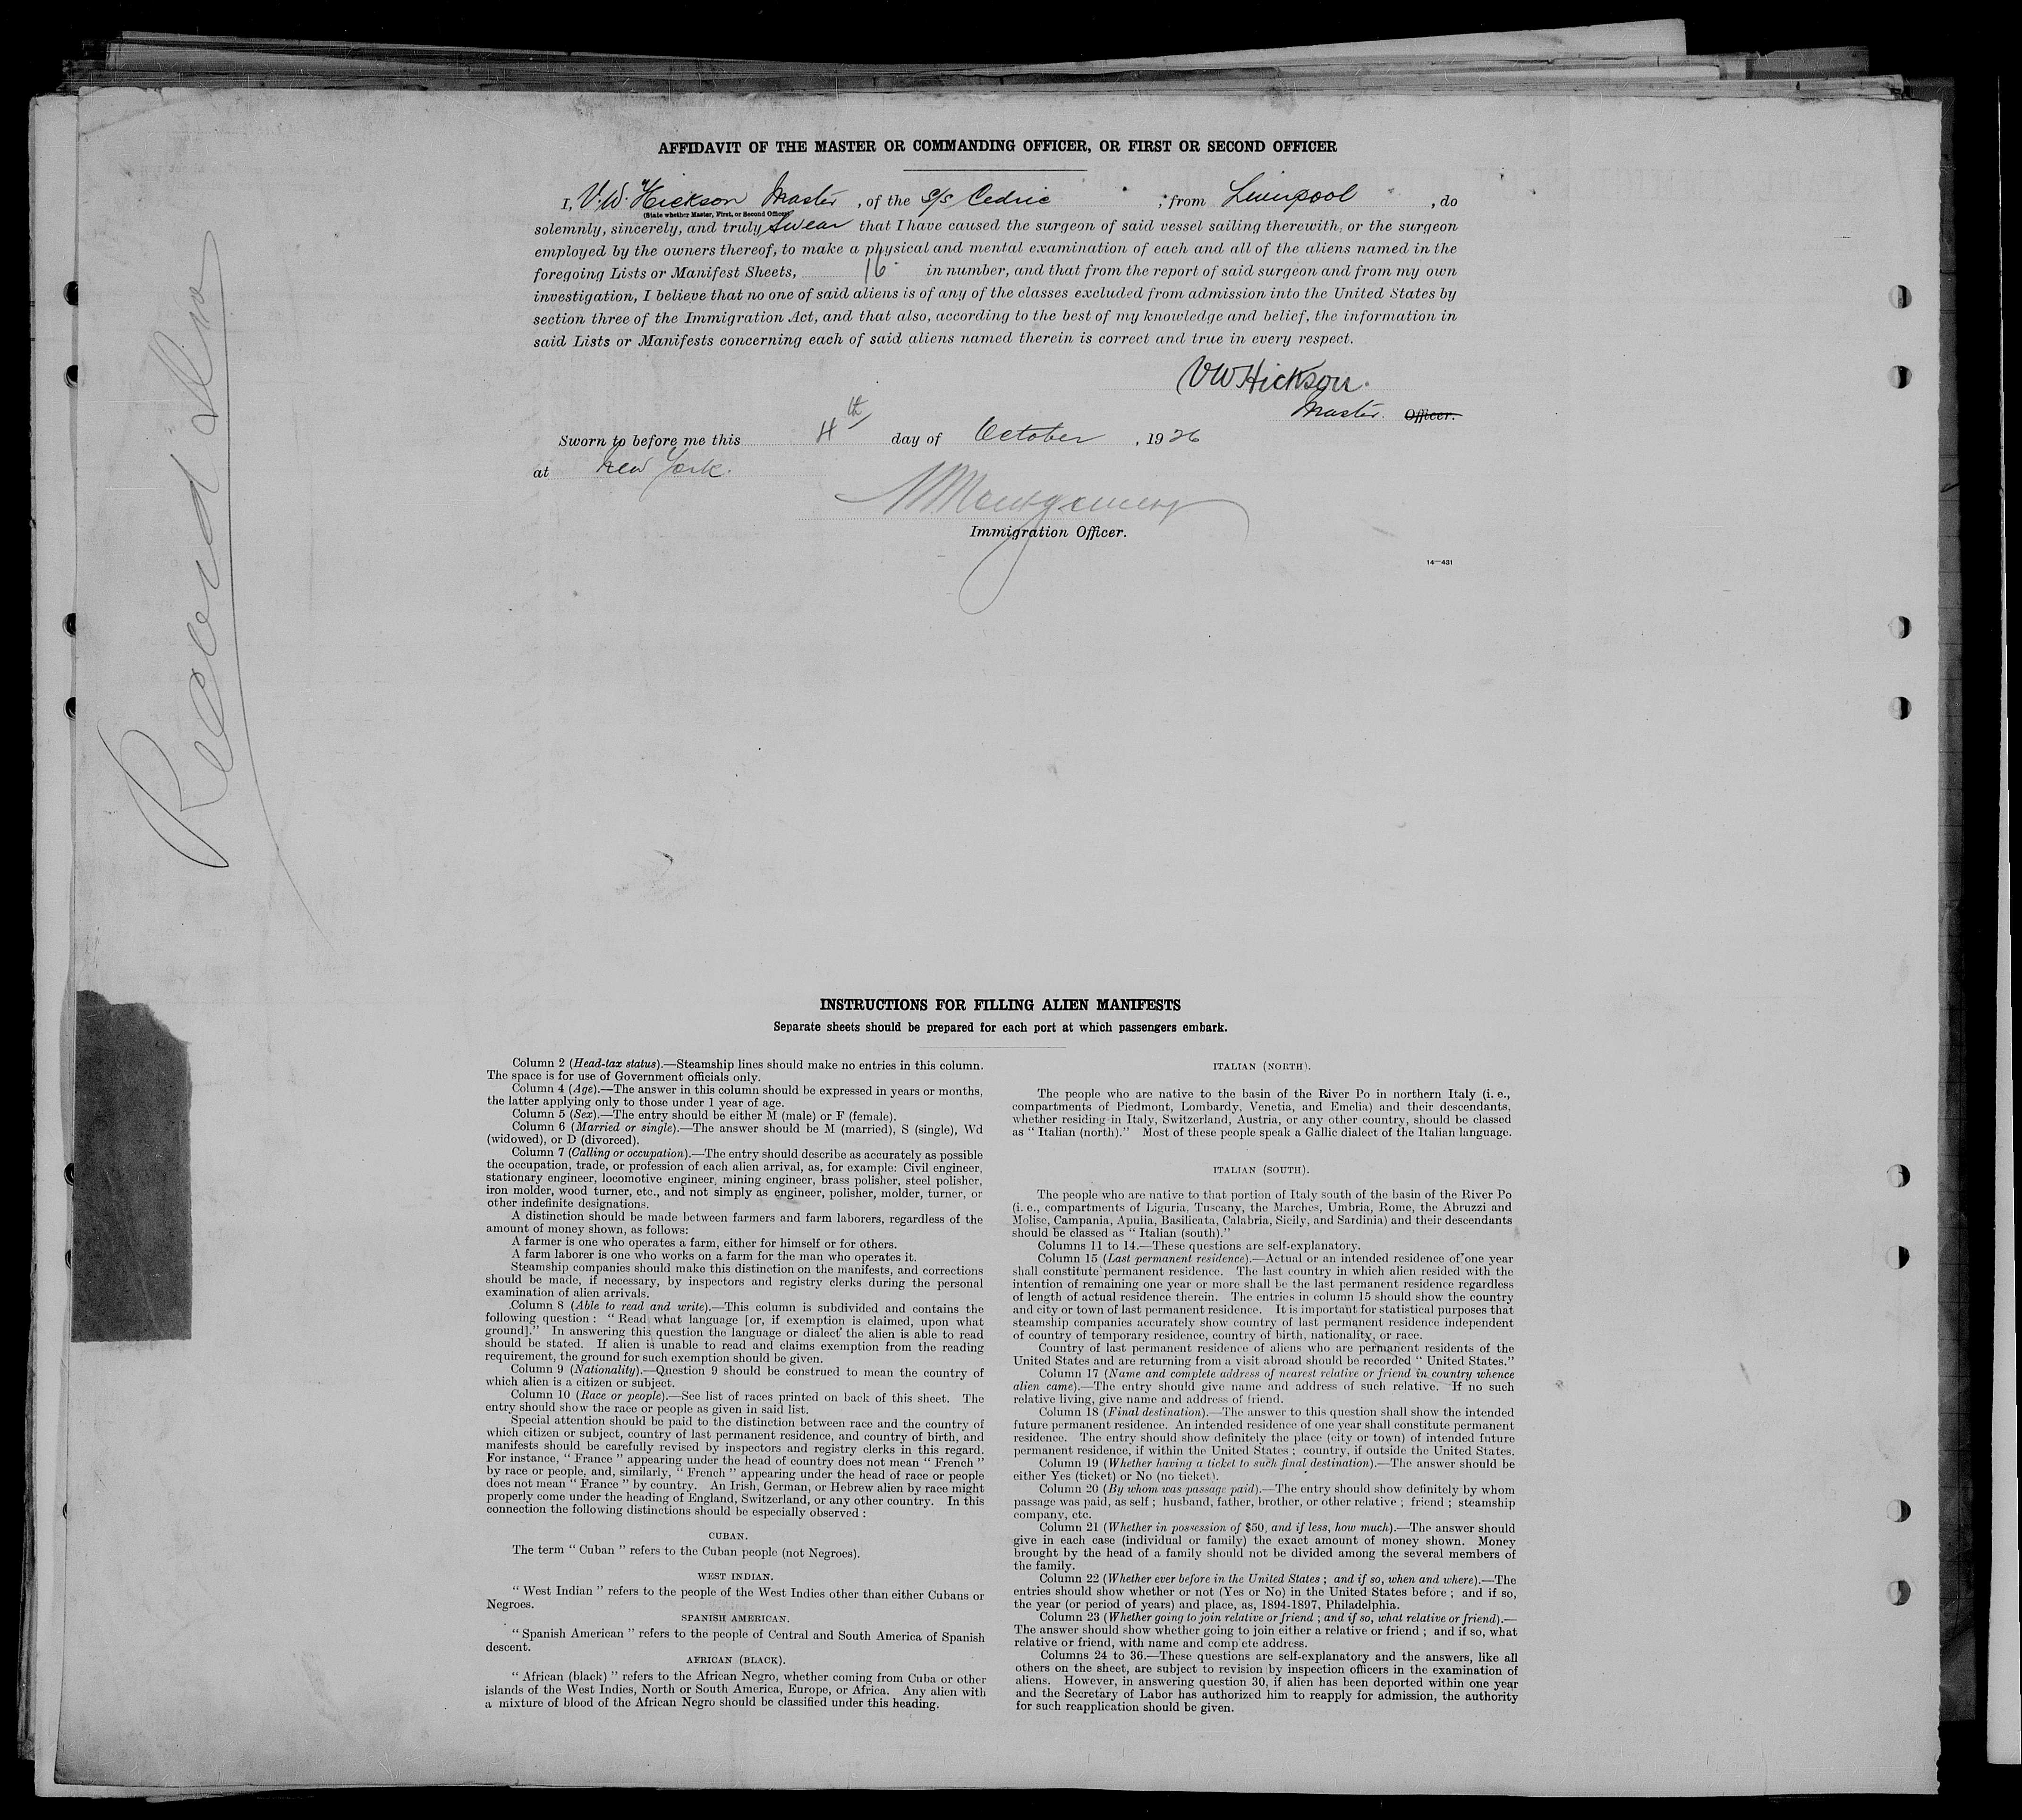 AFFIDAVIT OF THE MASTER OR COMMANDING OFFICER, OR FIRST OR SECOND OFFICER
I, V.W. Hickson Master, of the S/S Cedric ; from Liverpool, do
(State whether Master, First, or Second Officer)
solemnly, sincerely, and truly swear that I have caused the surgeon of said vessel sailing therewith, or the surgeon
employed by the owners thereof, to make a physical and mental examination of each and all of the aliens named in the
foregoing Lists or Manifest Sheets, 16 in number, and that from the report of said surgeon and from my own
investigation, I believe that no one of said aliens is of any of the classes excluded from admission into the United States by
section three of the Immigration Act, and that also, according to the best of my knowledge and belief, the information in
said Lists or Manifests concerning each of said aliens named therein is correct and true in every respect.
VW Hickson.
Master. Officer.
Sworn to before me this 4th day of October, 1926
at New York.
Montgomery
Immigration Officer.
14—431
Record
INSTRUCTIONS FOR FILLING ALIEN MANIFESTS
Separate sheets should be prepared for each port at which passengers embark.
Column 2 (Head-tax status).—Steamship lines should make no entries in this column.
The space is for use of Government officials only.
Column 4 (Age).—The answer in this column should be expressed in years or months,
the latter applying only to those under 1 year of age.
Column 5 (Sex).—The entry should be either M (male) or F (female).
Column 6 (Married or single).—The answer should be M (married), S (single), Wd
(widowed), or D (divorced).
Column 7 (Calling or occupation).—The entry should describe as accurately as possible
the occupation, trade, or profession of each alien arrival, as, for example: Civil engineer,
stationary engineer, locomotive engineer, mining engineer, brass polisher, steel polisher,
iron molder, wood turner, etc., and not simply as engineer, polisher, molder, turner, or
other indefinite designations.
A distinction should be made between farmers and farm laborers, regardless of the
amount of money shown, as follows:
A farmer is one who operates a farm, either for himself or for others.
A farm laborer is one who works on a farm for the man who operates it.
Steamship companies should make this distinction on the manifests, and corrections
should be made, if necessary, by inspectors and registry clerks during the personal
examination of alien arrivals.
Column 8 (Able to read and write).—This column is subdivided and contains the
following question : “ Read what language [or, if exemption is claimed, upon what
ground].” In answering this question the language or dialect the alien is able to read
should be stated. If alien is unable to read and claims exemption from the reading
requirement, the ground for such exemption should be given.
Column 9 (Nationality).—Question 9 should be construed to mean the country of
which alien is a citizen or subject.
Column 10 (Race or people).—See list of races printed on back of this sheet. The
entry should show the race or people as given in said list.
Special attention should be paid to the distinction between race and the country of
which citizen or subject, country of last permanent residence, and country of birth, and
manifests should be carefully revised by inspectors and registry clerks in this regard.
For instance, “ France ” appearing under the head of country does not mean “ French ”
by race or people, and, similarly, “ French ” appearing under the head of race or people
does not mean “ France ” by country. An Irish, German, or Hebrew alien by race might
properly come under the heading of England, Switzerland, or any other country. In this
connection the following distinctions should be especially observed :
CUBAN.
The term “ Cuban ” refers to the Cuban people (not Negroes).
WEST INDIAN.
“ West Indian ” refers to the people of the West Indies other than either Cubans or
Negroes.
SPANISH AMERICAN.
“ Spanish American ” refers to the people of Central and South America of Spanish
descent.
AFRICAN (BLACK).
“ African (black) ” refers to the African Negro, whether coming from Cuba or other
islands of the West Indies, North or South America, Europe, or Africa. Any alien with
a mixture of blood of the African Negro should be classified under this heading.
ITALIAN (NORTH).
The people who are native to the basin of the River Po in northern Italy (i. e.,
compartments of Piedmont, Lombardy, Venetia, and Emelia) and their descendants,
whether residing in Italy, Switzerland, Austria, or any other country, should be classed
as “ Italian (north).” Most of these people speak a Gallic dialect of the Italian language.
ITALIAN (SOUTH).
The people who are native to that portion of Italy south of the basin of the River Po
(i. e., compartments of Liguria, Tuscany, the Marches, Umbria, Rome, the Abruzzi and
Molise, Campania, Apulia, Basilicata, Calabria, Sicily, and Sardinia) and their descendants
should be classed as “ Italian (south).”
Columns 11 to 14.—These questions are self-explanatory.
Column 15 (Last permanent residence).—Actual or an intended residence of one year
shall constitute permanent residence. The last country in which alien resided with the
intention of remaining one year or more shall be the last permanent residence regardless
of length of actual residence therein. The entries in column 15 should show the country
and city or town of last permanent residence. It is important for statistical purposes that
steamship companies accurately show country of last permanent residence independent
of country of temporary residence, country of birth, nationality, or race.
Country of last permanent residence of aliens who are permanent residents of the
United States and are returning from a visit abroad should be recorded “ United States.”
Column 17 (Name and complete address of nearest relative or friend in country whence
alien came).—The entry should give name and address of such relative. If no such
relative living, give name and address of friend.
Column 18 (Final destination).—The answer to this question shall show the intended
future permanent residence. An intended residence of one year shall constitute permanent
residence. The entry should show definitely the place (city or town) of intended future
permanent residence, if within the United States ; country, if outside the United States.
Column 19 (Whether having a ticket to such final destination).—The answer should be
either Yes (ticket) or No (no ticket).
Column 20 (By whom was passage paid).—The entry should show definitely by whom
passage was paid, as self ; husband, father, brother, or other relative ; friend ; steamship
company, etc.
Column 21 (Whether in possession of $50, and if less, how much).—The answer should
give in each case (individual or family) the exact amount of money shown. Money
brought by the head of a family should not be divided among the several members of
the family.
Column 22 (Whether ever before in the United States ; and if so, when and where).—The
entries should show whether or not (Yes or No) in the United States before ; and if so,
the year (or period of years) and place, as, 1894-1897, Philadelphia.
Column 23 (Whether going to join relative or friend ; and if so, what relative or friend).—
The answer should show whether going to join either a relative or friend ; and if so, what
relative or friend, with name and complete address.
Columns 24 to 36.—These questions are self-explanatory and the answers, like all
others on the sheet, are subject to revision by inspection officers in the examination of
aliens. However, in answering question 30, if alien has been deported within one year
and the Secretary of Labor has authorized him to reapply for admission, the authority
for such reapplication should be given.